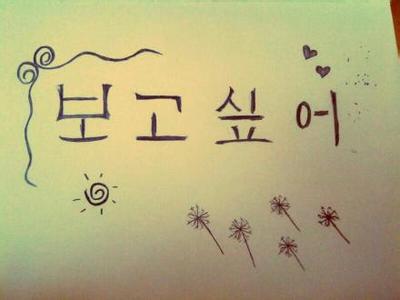 보고싶어